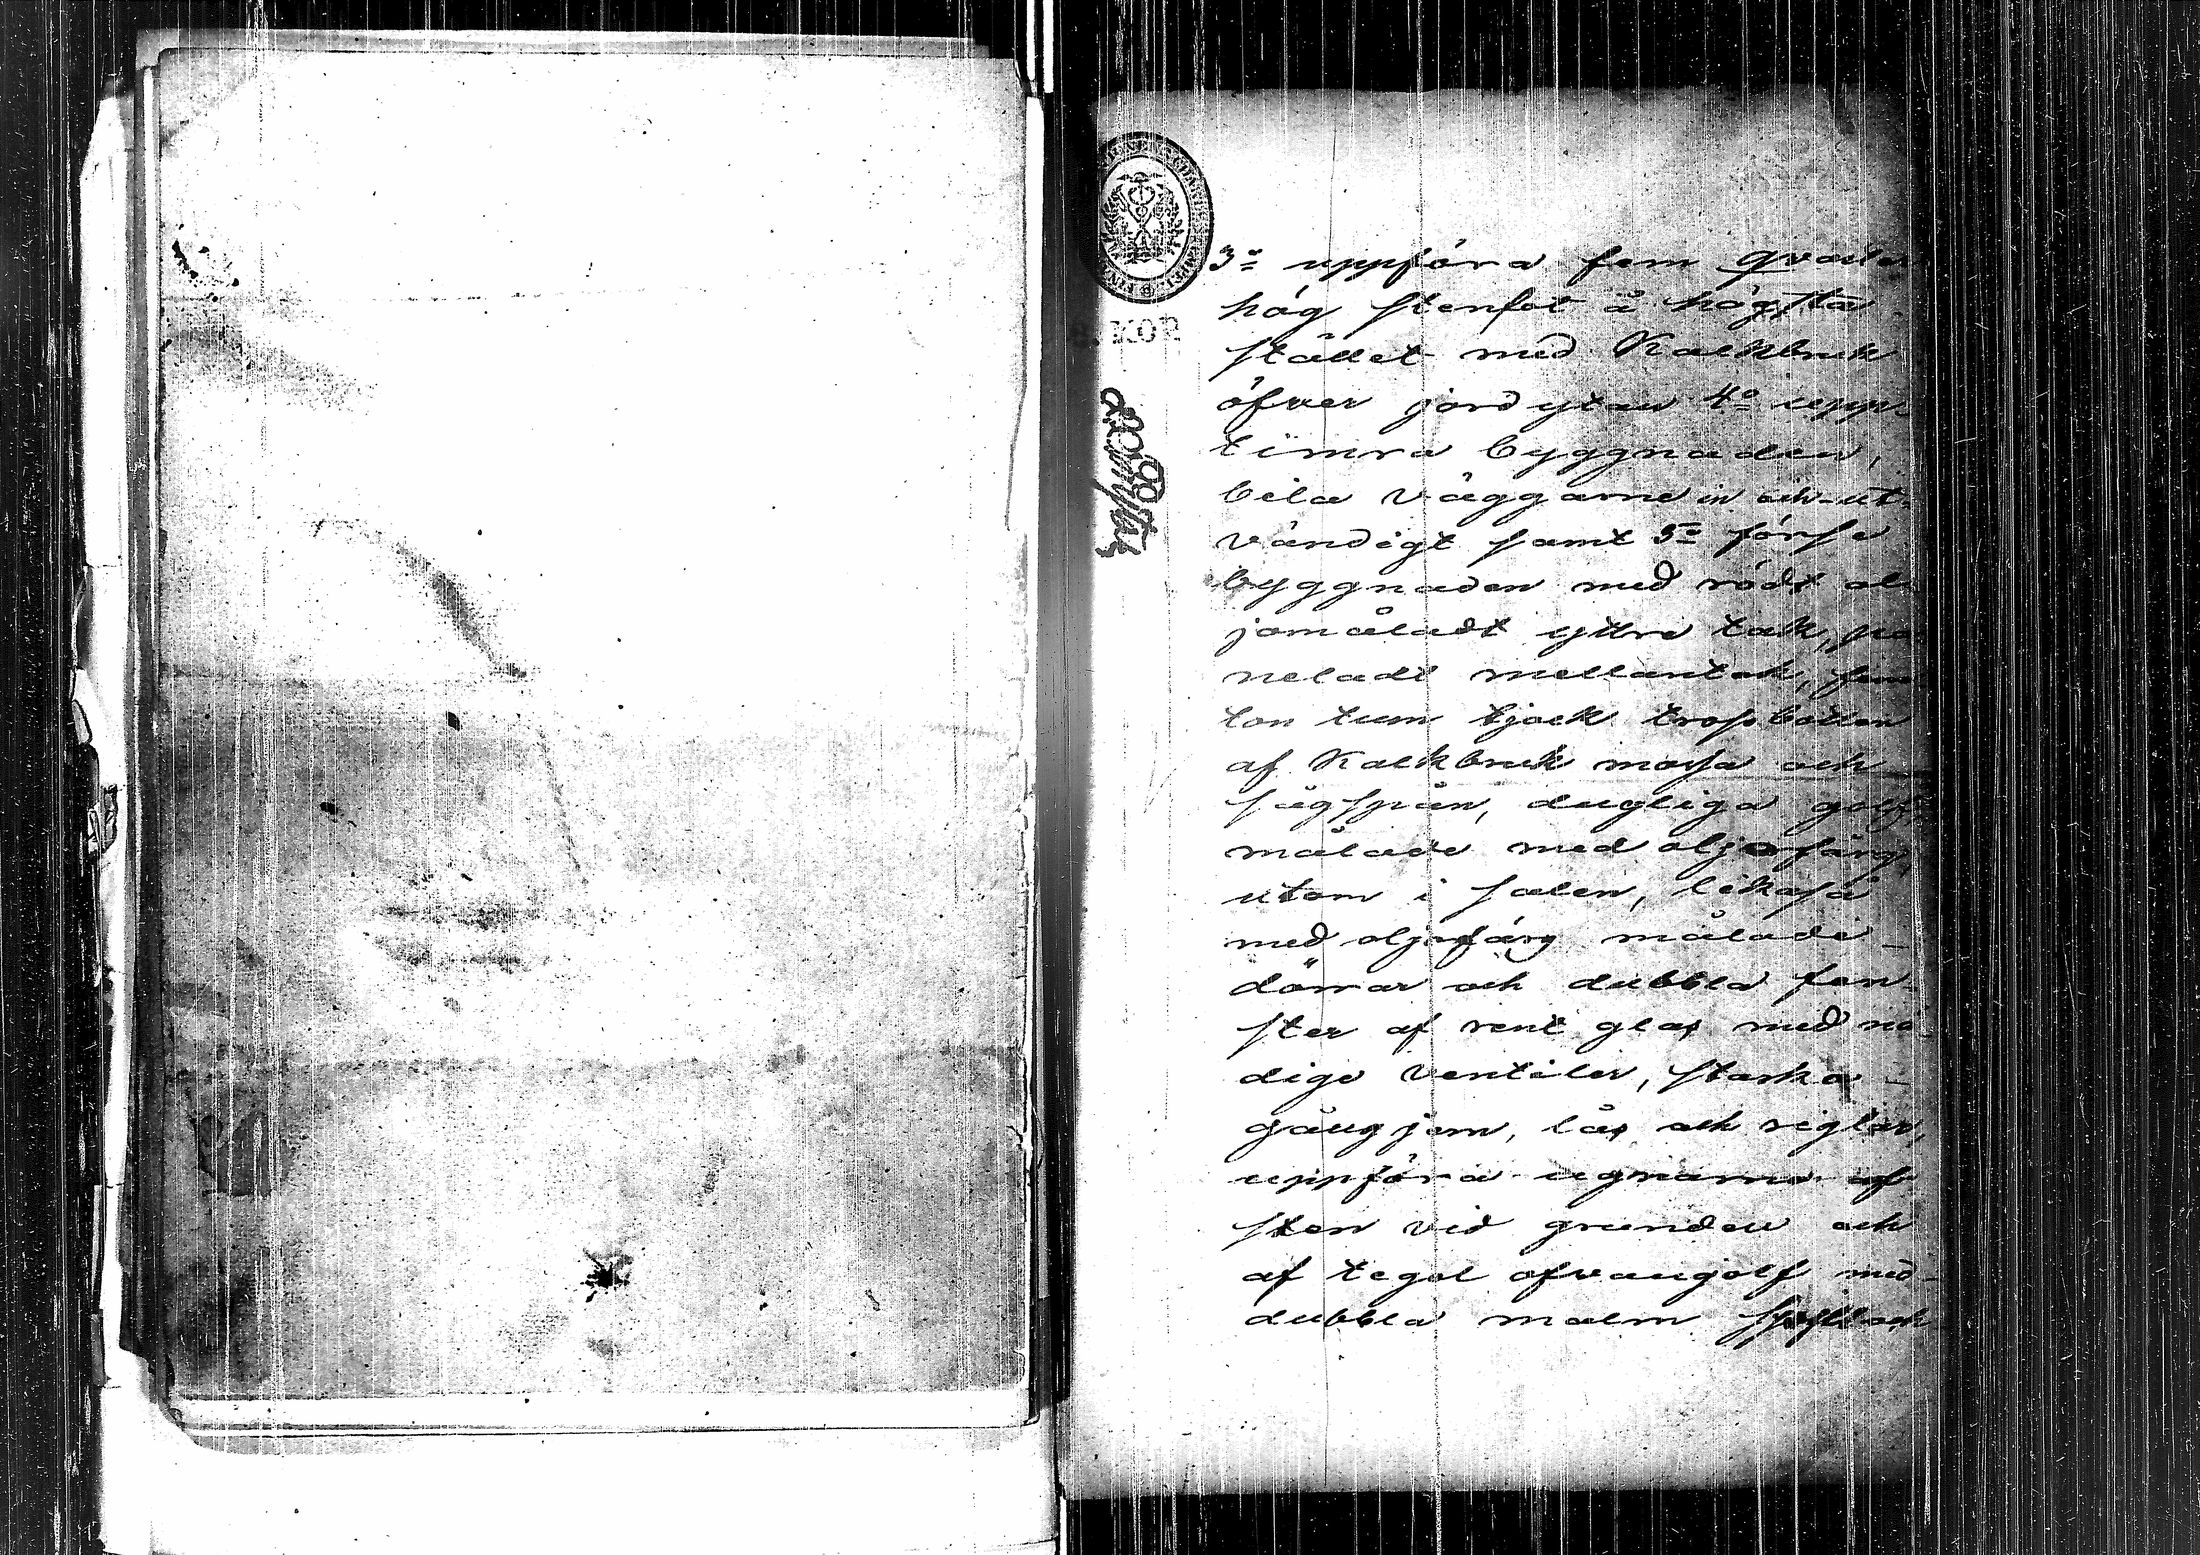 3:o uppföra fem qvarter
hög stenfot å högsta
stället med Kalkbruk
öfver jordytan 4:o upp-
timra byggnaden,
bila väggarne in och ut-
vändigt samt 5:o förse
byggnaden med rödt ol-
jomåladt yttre tak, pa
neladt mellantak, fem
ton tum tjock trossbotten
af Kalkbruk mossa och
sågspån, dugliga golf
målade med oljefärg
utom i salen, likaså
med oljefärg målade
dörrar och dubbla fön-
ster af rent glas med nö-
diga ventiler, starka
gångjern, lås och reglar,
uppföra ugnarna af
sten vid grunden och
af tegel ofvangolf med
dubbla malm spjell och
KOP